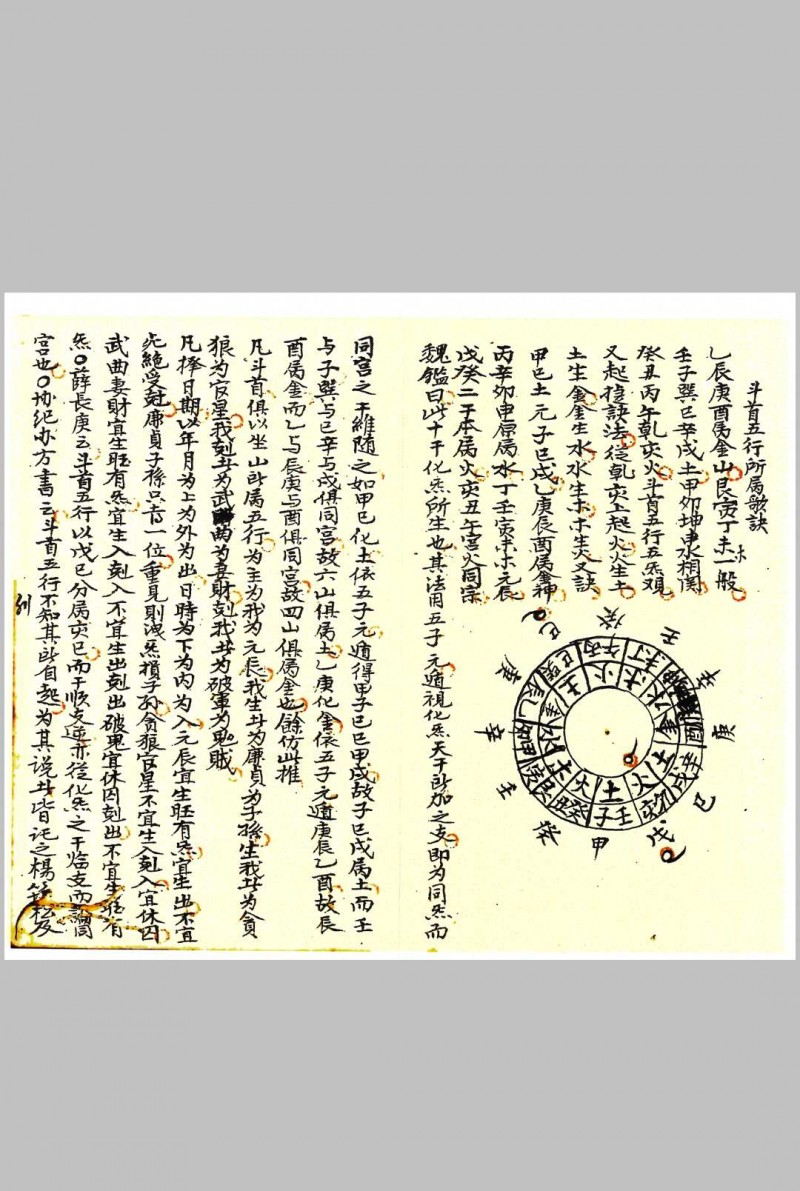 斗首五行所属歌訣
乙辰庚酉属金山艮寅丁未木一般
壬子巽巳辛戌土甲卯坤申水相関
癸丑丙午乾亥火斗首五行五炁观
又起捷訣法從乾亥上起火火生土
土生金金生水水生木木生火又訣
甲巳土元子巳戌乙庚辰酉属金神
丙辛卯申原属水丁壬寅未木元辰
戊癸二干本属火亥丑午宫火同宗
魏鑑曰此十干化炁所生也其法用五子元遁視化炁天干所加之支即為同炁而
癸
壬
辛
庚
己
戊
甲
癸
壬
辛
庚
己
同宫之干維随之如甲巳化土依五子元遁得甲子己巳甲戌故子巳戌属土而壬
与子巽与巳辛与戌俱同宫故六山俱属土乙庚化金依五子元遁庚辰乙酉故辰
酉属金而乙与辰庚与酉俱同宫故四山俱属金也餘仿此推
凡斗首俱以坐山所属五行為主為我為元辰我生者為廉貞為子孫生我者為貪
狼為官星我剋者為武曲為妻財剋我者為破軍為鬼賊
凡擇日期以年月為上為外為出日時為下為内為入元辰宜生旺有炁宜生出不宜
死絶受尅廉貞子孫只喜一位重見則洩炁損子孙貪狼官星不宜生入剋入宜休囚
武曲妻財宜生旺有炁宜生入剋入不宜生出剋出破鬼宜休囚剋出不宜生旺有
炁○薛長庚云斗首五行以戊巳分属亥巳而干順支逆亦從化炁之干臨支而論同
宫也○协纪办方書云斗首五行不知其所自起為其説者皆託之楊筠松及